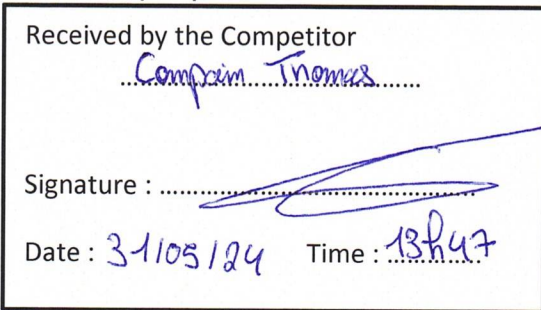 Received by the Competitor
Compain Thomas
Signature :
Date : 31/05/24 Time : 13h47